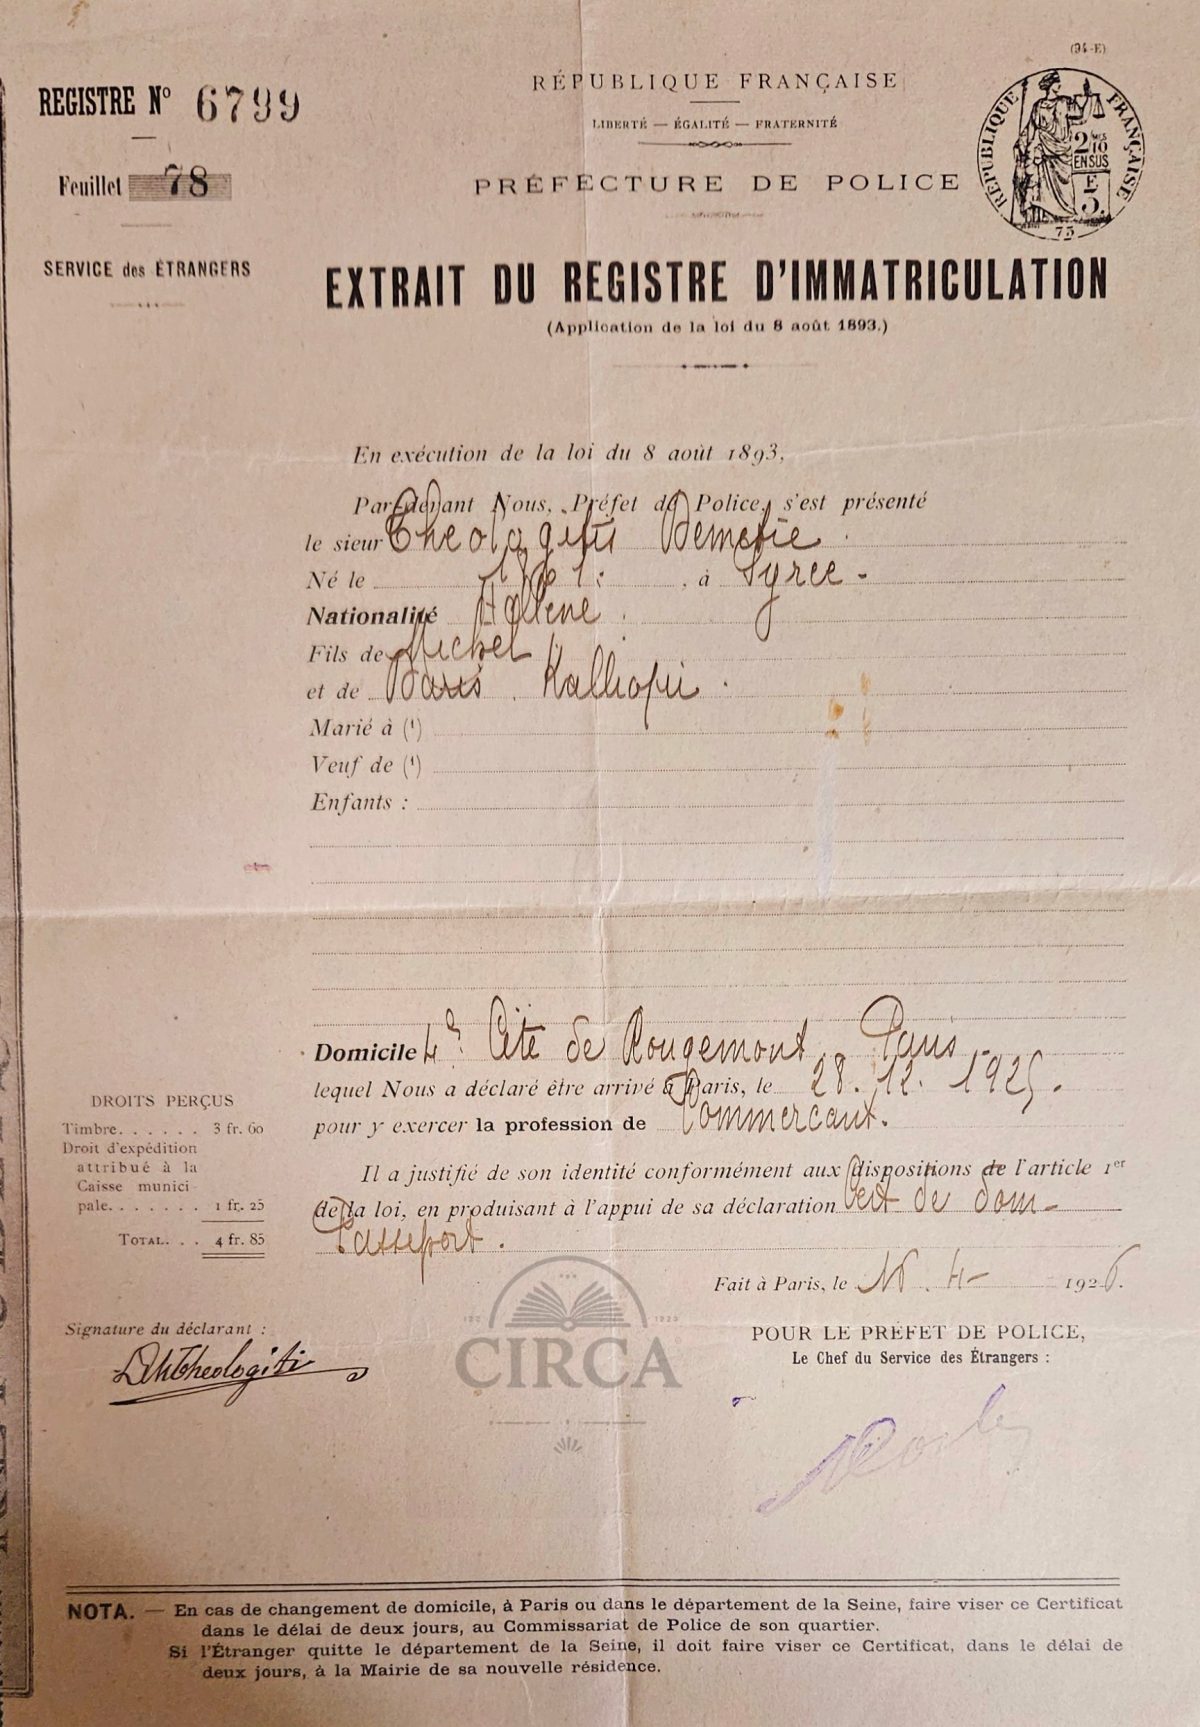 (94-E)
REGISTRE N° 6799
Feuillet 78
SERVICE des ÉTRANGERS
RÉPUBLIQUE FRANÇAISE
LIBERTÉ — ÉGALITÉ — FRATERNITÉ
PRÉFECTURE DE POLICE
RÉPUBLIQUE FRANÇAISE
2/10
EN SUS
75
EXTRAIT DU REGISTRE D'IMMATRICULATION
(Application de la loi du 8 août 1893.)
En exécution de la loi du 8 août 1893,
Par-devant Nous, Préfet de Police, s'est présenté
le sieur Theologitis
Né le à Syree.
Nationalité Hellène.
Fils de Michel
et de Kalliopii.
Marié à (1)
Veuf de (1)
Enfants :
Domicile 4 Cité de Rougemont Paris
lequel Nous a déclaré être arrivé à Paris, le 28.12.1925.
pour y exercer la profession de Commercant.
Il a justifié de son identité conformément aux dispositions de l'article 1er
de la loi, en produisant à l'appui de sa déclaration Cert de dom-
Passeport.
Fait à Paris, le 16.4- 1926.
DROITS PERÇUS
Timbre. . . . . . 3 fr. 60
Droit d'expédition
attribué à la
Caisse munici-
pale. . . . . . . 1 fr. 25
TOTAL. . . 4 fr. 85
Signature du déclarant :
Theologiti
POUR LE PRÉFET DE POLICE,
Le Chef du Service des Étrangers :
CIRCA
NOTA. — En cas de changement de domicile, à Paris ou dans le département de la Seine, faire viser ce Certificat
dans le délai de deux jours, au Commissariat de Police de son quartier.
Si l'Étranger quitte le département de la Seine, il doit faire viser ce Certificat, dans le délai de
deux jours, à la Mairie de sa nouvelle résidence.